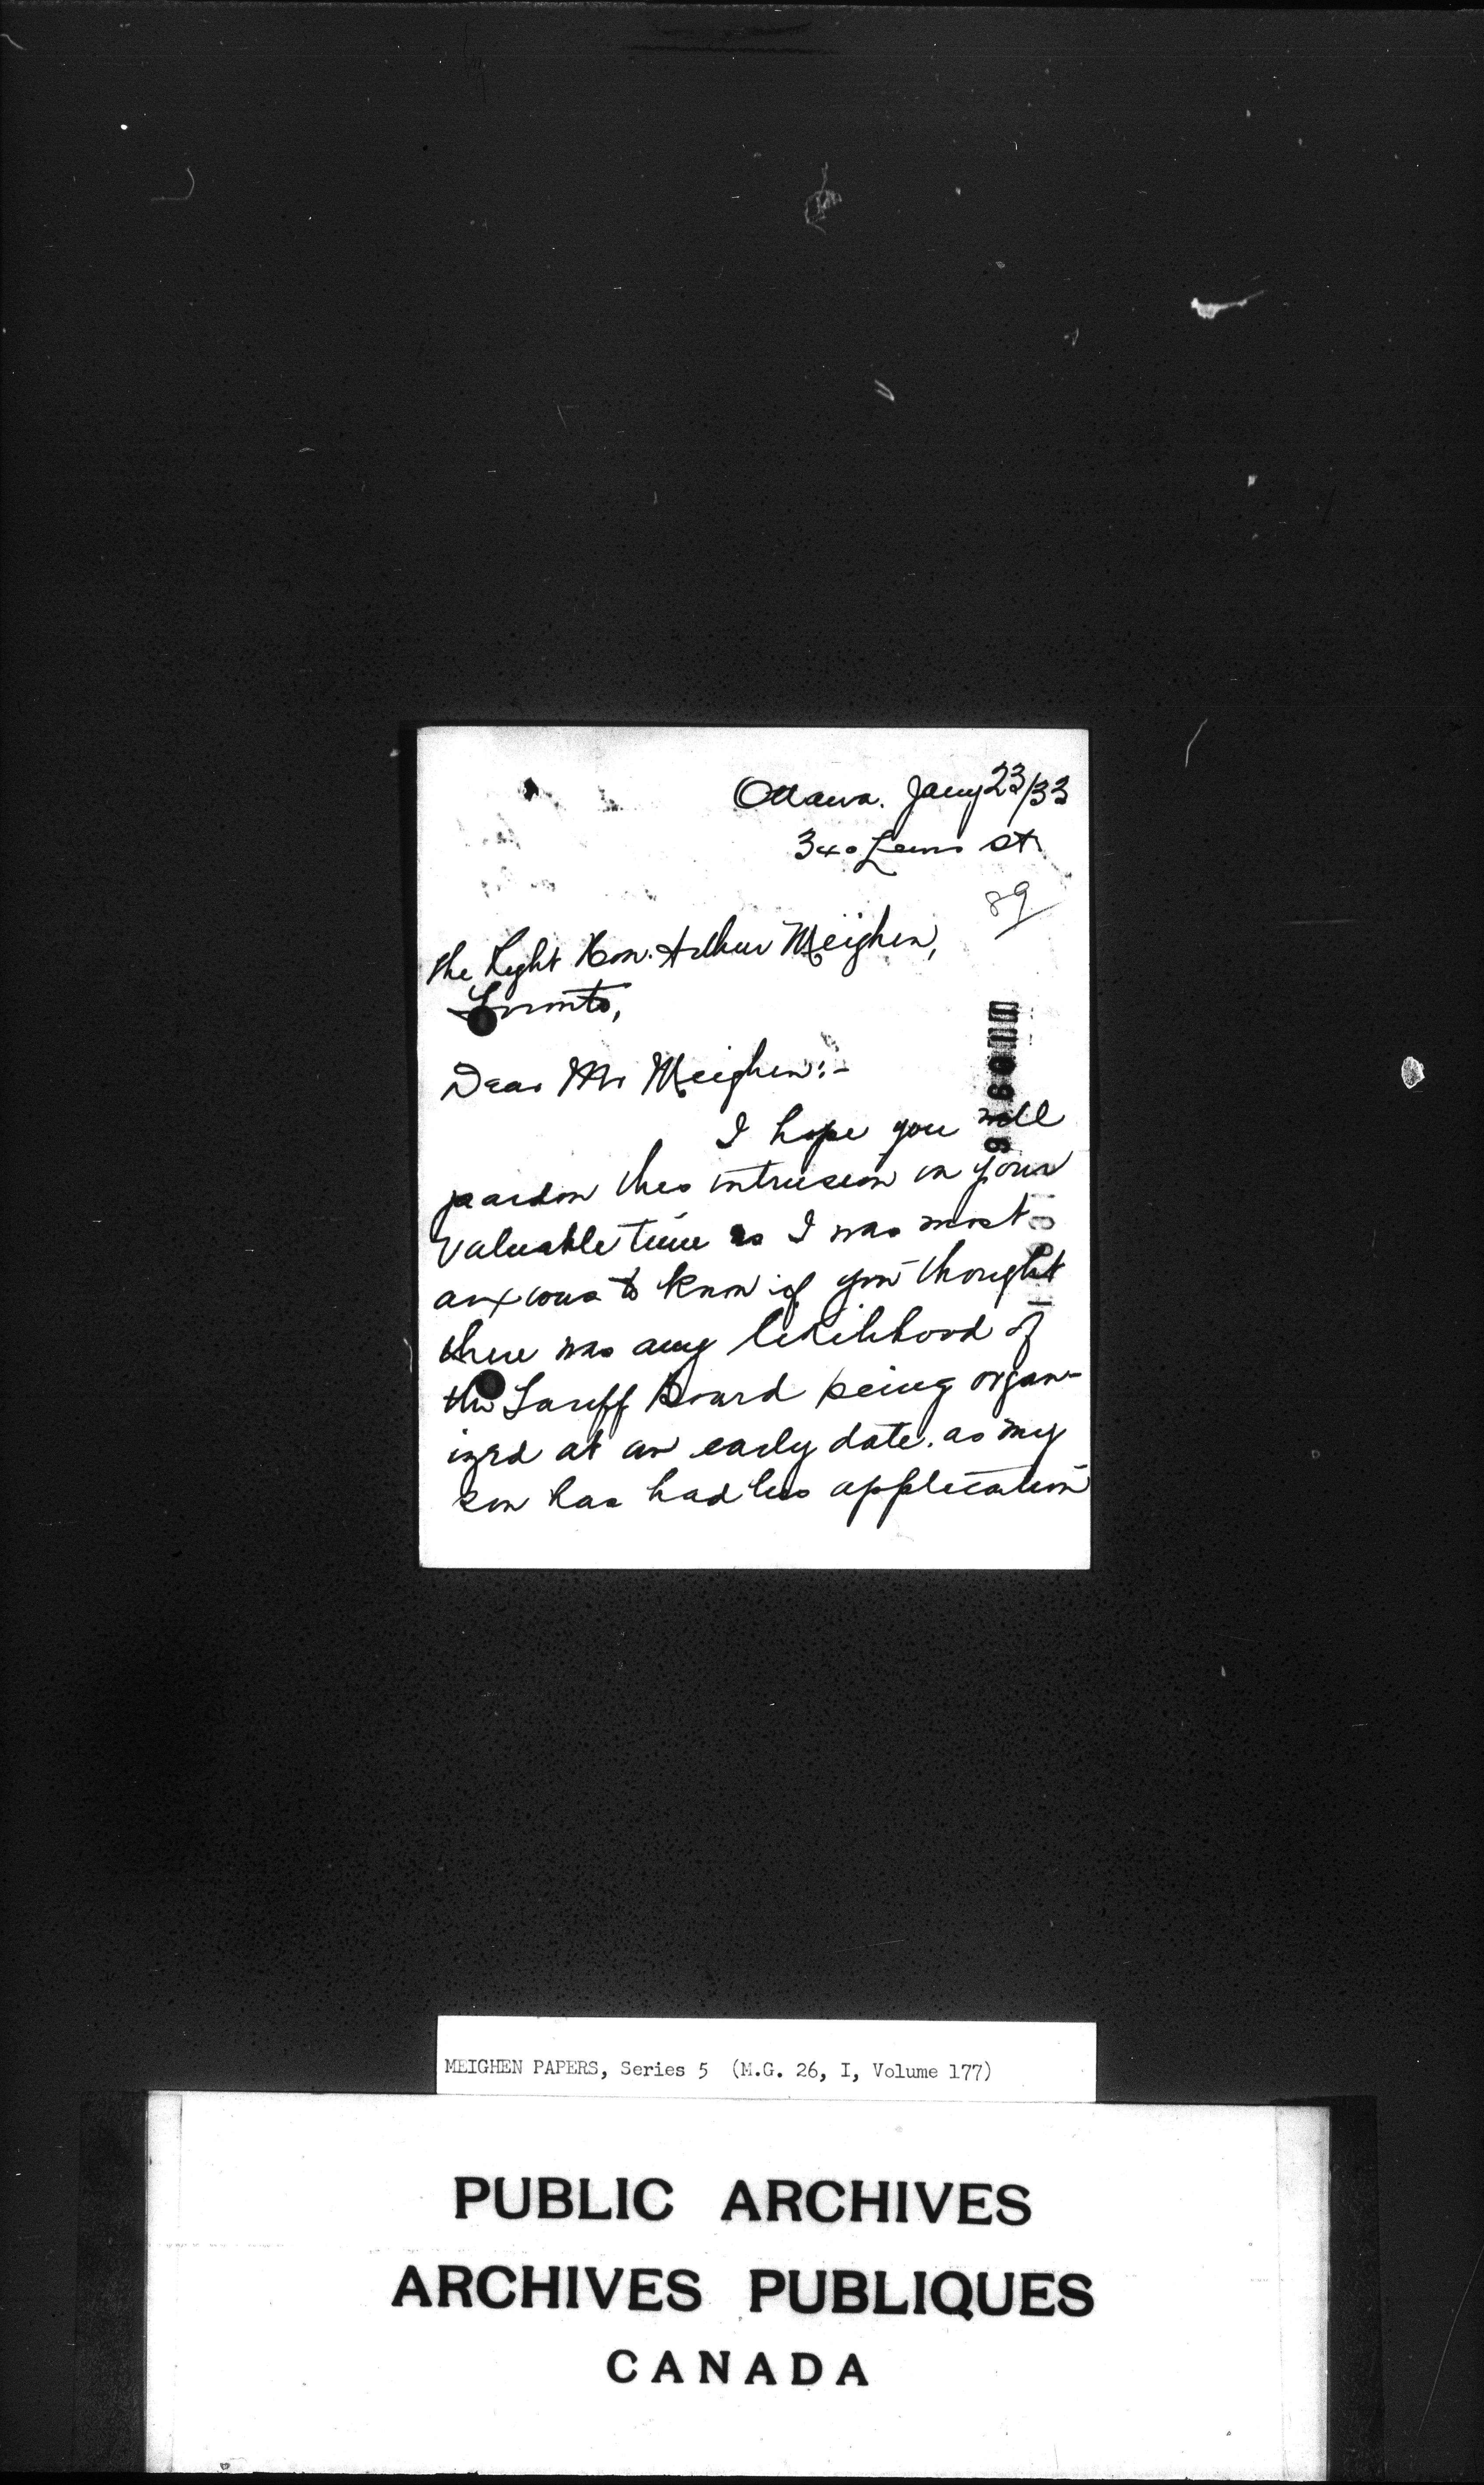 Ottawa. Jany 23/33
340 Lewis St
89
The Right Hon. Arthur Meighen,
Toronto,
Dear Mr Meighen:-
I hope you will
pardon this intrusion on your
valuable time as I was most
anxious to know if you thought
there was any likelihood of
the Tariff Board being organ-
ized at an early date. as my
son has had his application
MEIGHEN PAPERS, Series 5 (M.G. 26, I, Volume 177)
PUBLIC ARCHIVES
ARCHIVES PUBLIQUES
CANADA